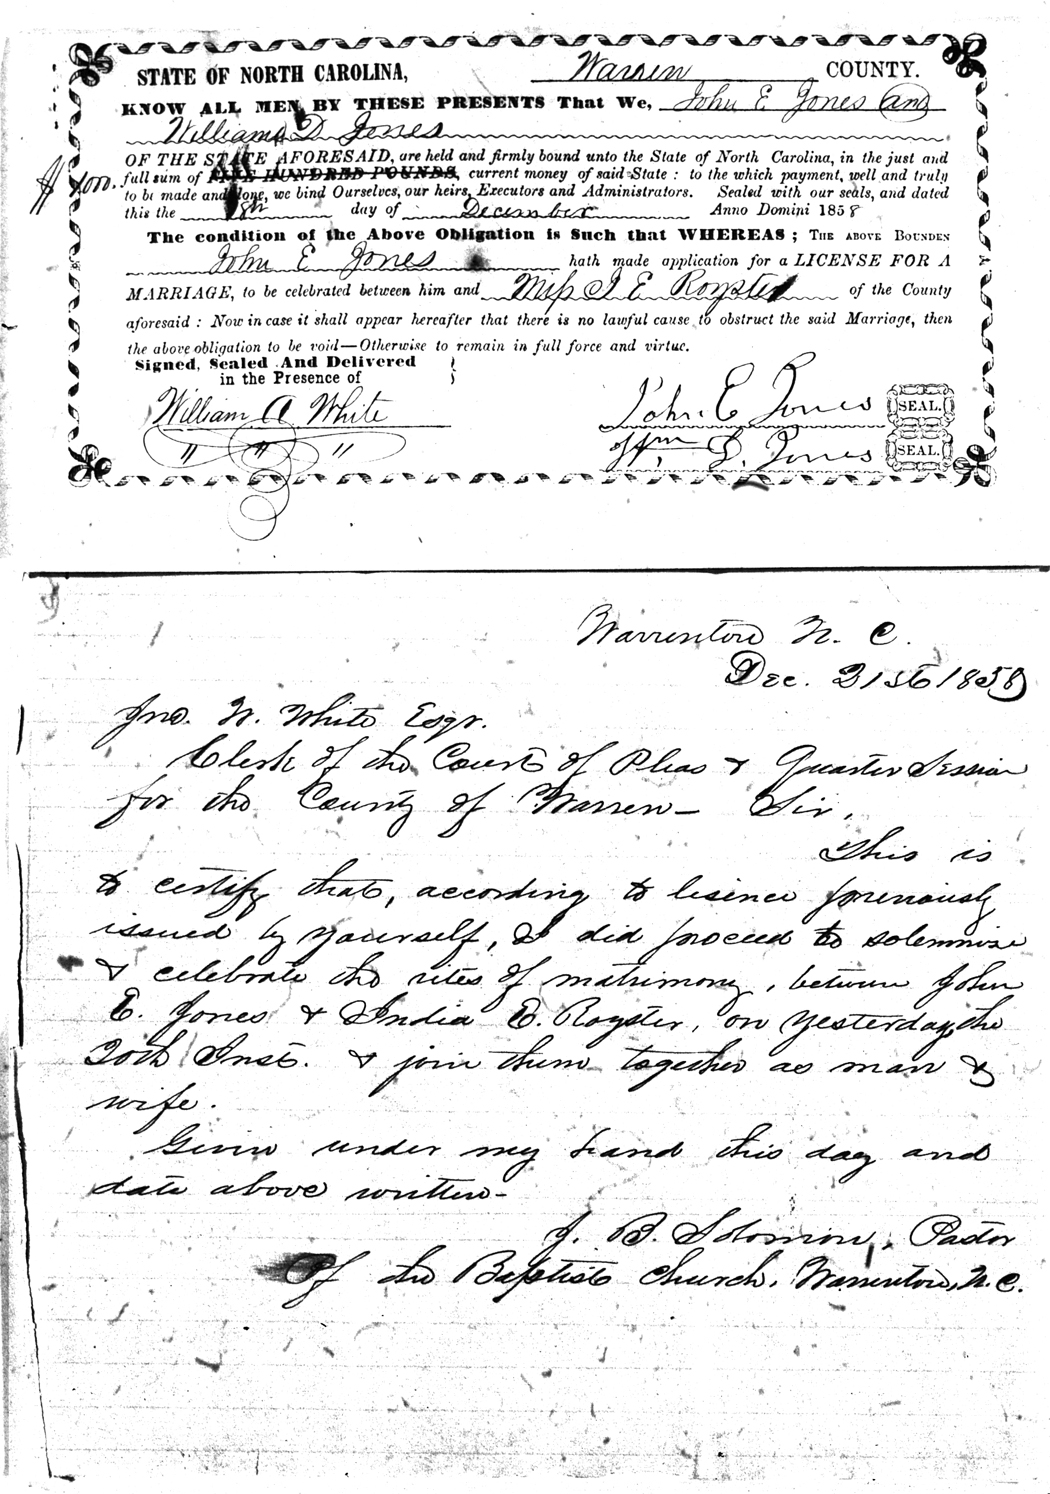 STATE OF NORTH CAROLINA, Warren COUNTY.
KNOW ALL MEN BY THESE PRESENTS That We, John E Jones and
William D Jones
OF THE STATE AFORESAID, are held and firmly bound unto the State of North Carolina, in the just and
full sum of FIVE HUNDRED POUNDS, current money of said State : to the which payment, well and truly
to be made and done, we bind Ourselves, our heirs, Executors and Administrators. Sealed with our seals, and dated
this the day of December Anno Domini 1858
The condition of the Above Obligation is Such that WHEREAS ; THE ABOVE BOUNDEN
John E Jones hath made application for a LICENSE FOR A
MARRIAGE, to be celebrated between him and Miss I E Royster of the County
aforesaid : Now in case it shall appear hereafter that there is no lawful cause to obstruct the said Marriage, then
the above obligation to be void—Otherwise to remain in full force and virtue.
Signed, Sealed And Delivered
in the Presence of
William A White
John E Jones SEAL.
" " "
Wm D. Jones SEAL.
Warrenton N. C.
Dec. 21st 1858
Jno. W. White Esqr.
Clerk of the Court of Pleas & Quarter Session
for the County of Warren— Sir,
This is
to certify that, according to lisence previously
issued by yourself, I did proceed to solemnize
& celebrate the rites of matrimony, between John
E. Jones & India E. Royster, on yesterday, the
20th Inst. & join them together as man &
wife.
Given under my hand this day and
date above written-
J. B. Solomon, Pastor
Of the Baptist Church, Warrenton, N. C.